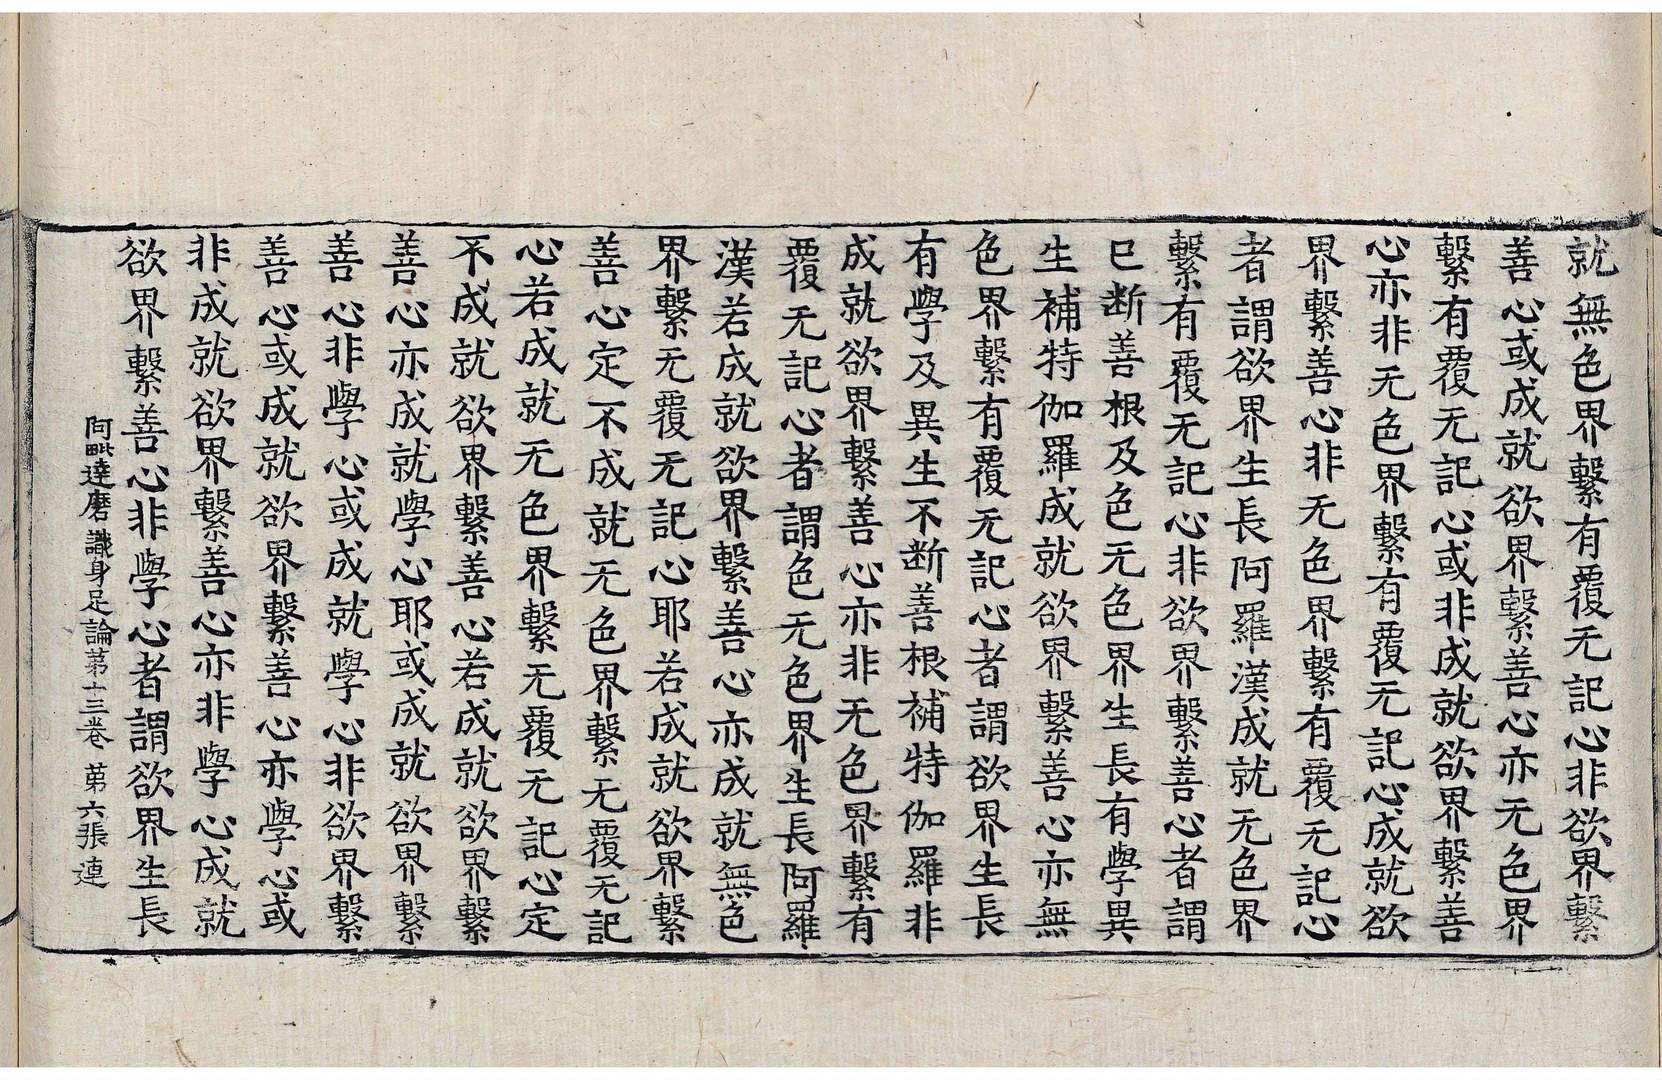 就無色界繫有覆无記心非欲界繫
善心或成就欲界繫善心亦无色界
繫有覆无記心或非成就欲界繫善
心亦非无色界繫有覆无記心成就欲
界繫善心非无色界繫有覆无記心
者謂欲界生長阿羅漢成就无色界
繫有覆无記心非欲界繫善心者謂
已断善根及色无色界生長有學異
生補特伽羅成就欲界繫善心亦無
色界繫有覆无記心者謂欲界生長
有學及異生不断善根補特伽羅非
成就欲界繫善心亦非无色界繫有
覆无記心者謂色无色界生長阿羅
漢若成就欲界繫善心亦成就無色
界繫无覆无記心耶若成就欲界繫
善心定不成就无色界繫无覆无記
心若成就无色界繫无覆无記心定
不成就欲界繫善心若成就欲界繫
善心亦成就學心耶或成就欲界繫
善心非學心或成就學心非欲界繫
善心或成就欲界繫善心亦學心或
非成就欲界繫善心亦非學心成就
欲界繫善心非學心者謂欲界生長
阿毗達磨識身足論第十三卷 第六張 連